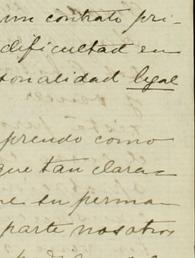 un contrato pri-
dificultad en
sonalidad legal
prendo como
que tan clara-
re su perma-
parte nosotros